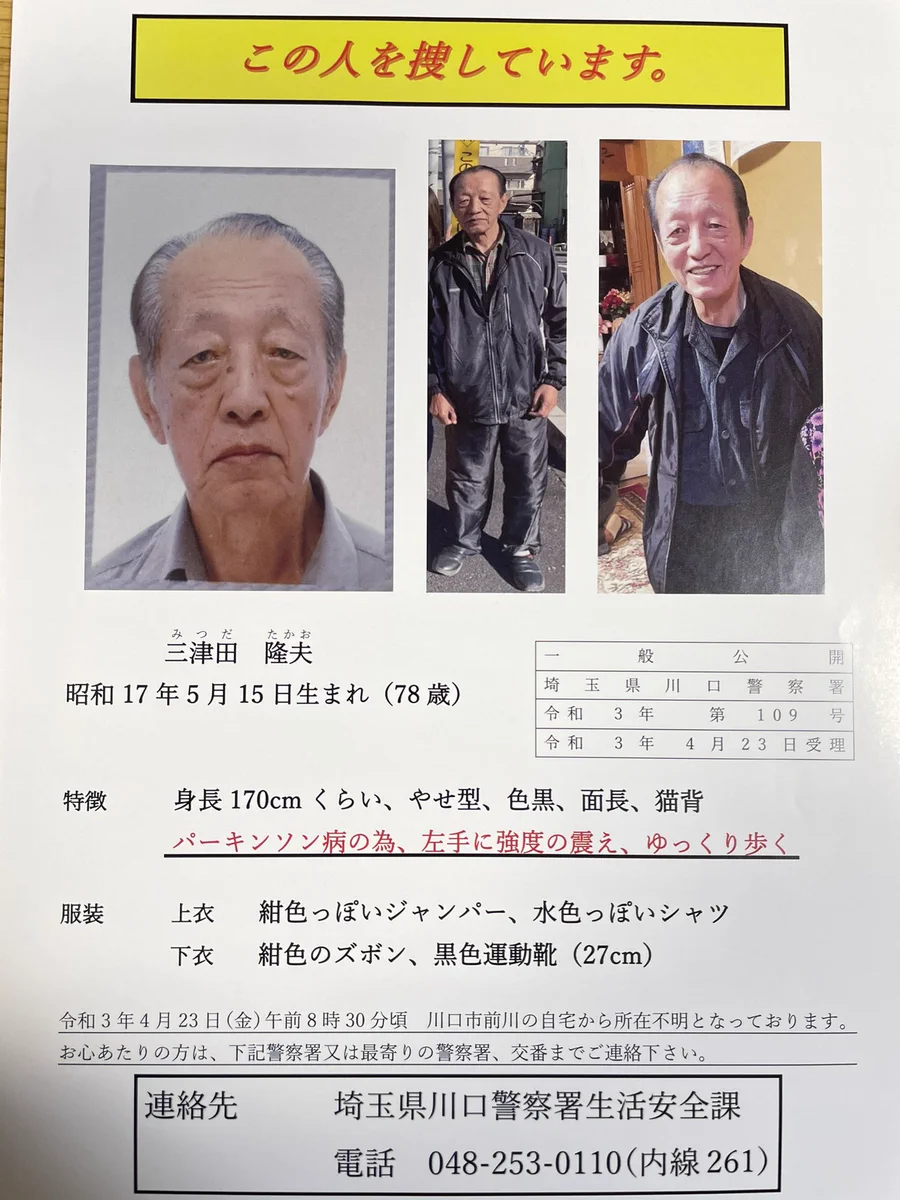 この人を捜しています。
みつだ たかお
三津田 隆夫
昭和17年5月15日生まれ（78歳）
一般公開
埼玉県川口警察署
令和3年 第109号
令和3年4月23日受理
特徴 身長170cmくらい、やせ型、色黒、面長、猫背
パーキンソン病の為、左手に強度の震え、ゆっくり歩く
服装 上衣 紺色っぽいジャンパー、水色っぽいシャツ
下衣 紺色のズボン、黒色運動靴（27cm）
令和3年4月23日(金)午前8時30分頃 川口市前川の自宅から所在不明となっております。
お心あたりの方は、下記警察署又は最寄りの警察署、交番までご連絡下さい。
連絡先 埼玉県川口警察署生活安全課
電話 048-253-0110(内線261)